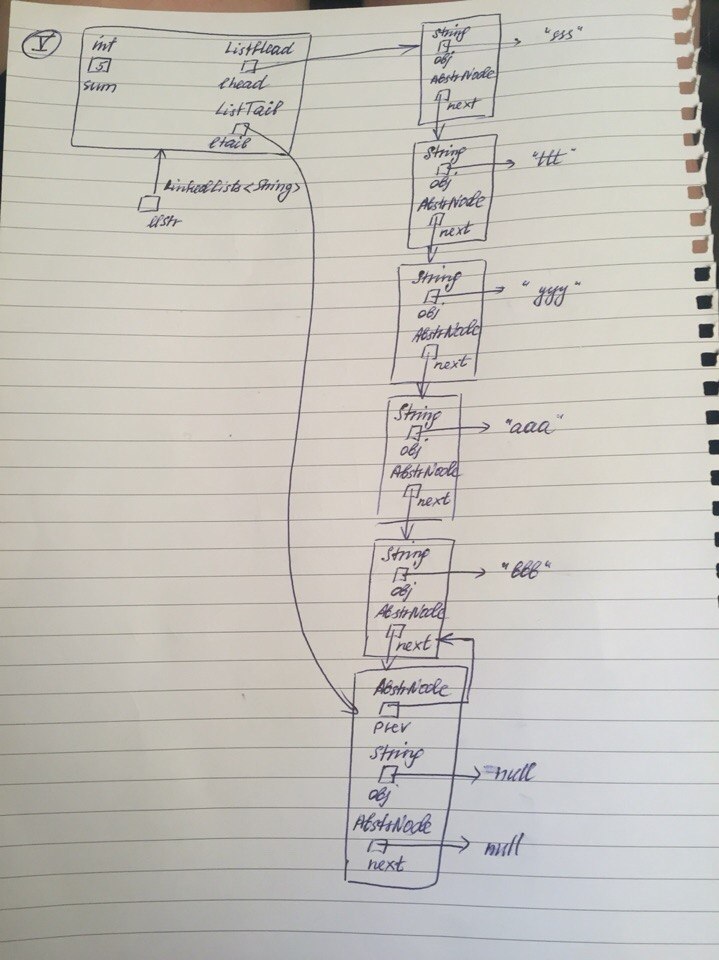 V
int
5
sum
ListHead
lhead
ListTail
ltail
LinkedLists<String>
llstr
String
obj
"sss"
AbstrNode
next
String
obj
"ttt"
AbstrNode
next
String
obj
"yyy"
AbstrNode
next
String
obj
"aaa"
AbstrNode
next
String
obj
"bbb"
AbstrNode
next
AbstrNode
prev
String
obj
null
AbstrNode
next
null